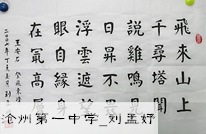 飛來山上
千尋塔聞
說雞鳴見
日昇不畏
浮雲遮望
眼自緣身
在最高層
王安石
沧州第一中学_刘孟妤